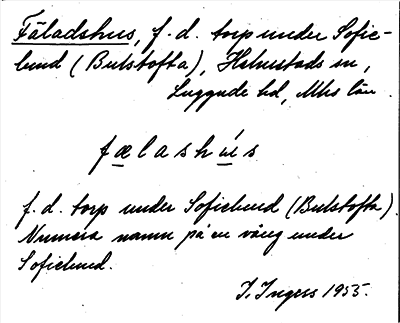 Fäladshus, f. d. torp under Sofie-
lund (Bulstofta), Halmstads sn,
Luggude hd, Mhs län.
fælashu̇s
f. d. torp under Sofielund (Bulstofta).
Numera namn på en väng under
Sofielund.
I. Ingers 1955.